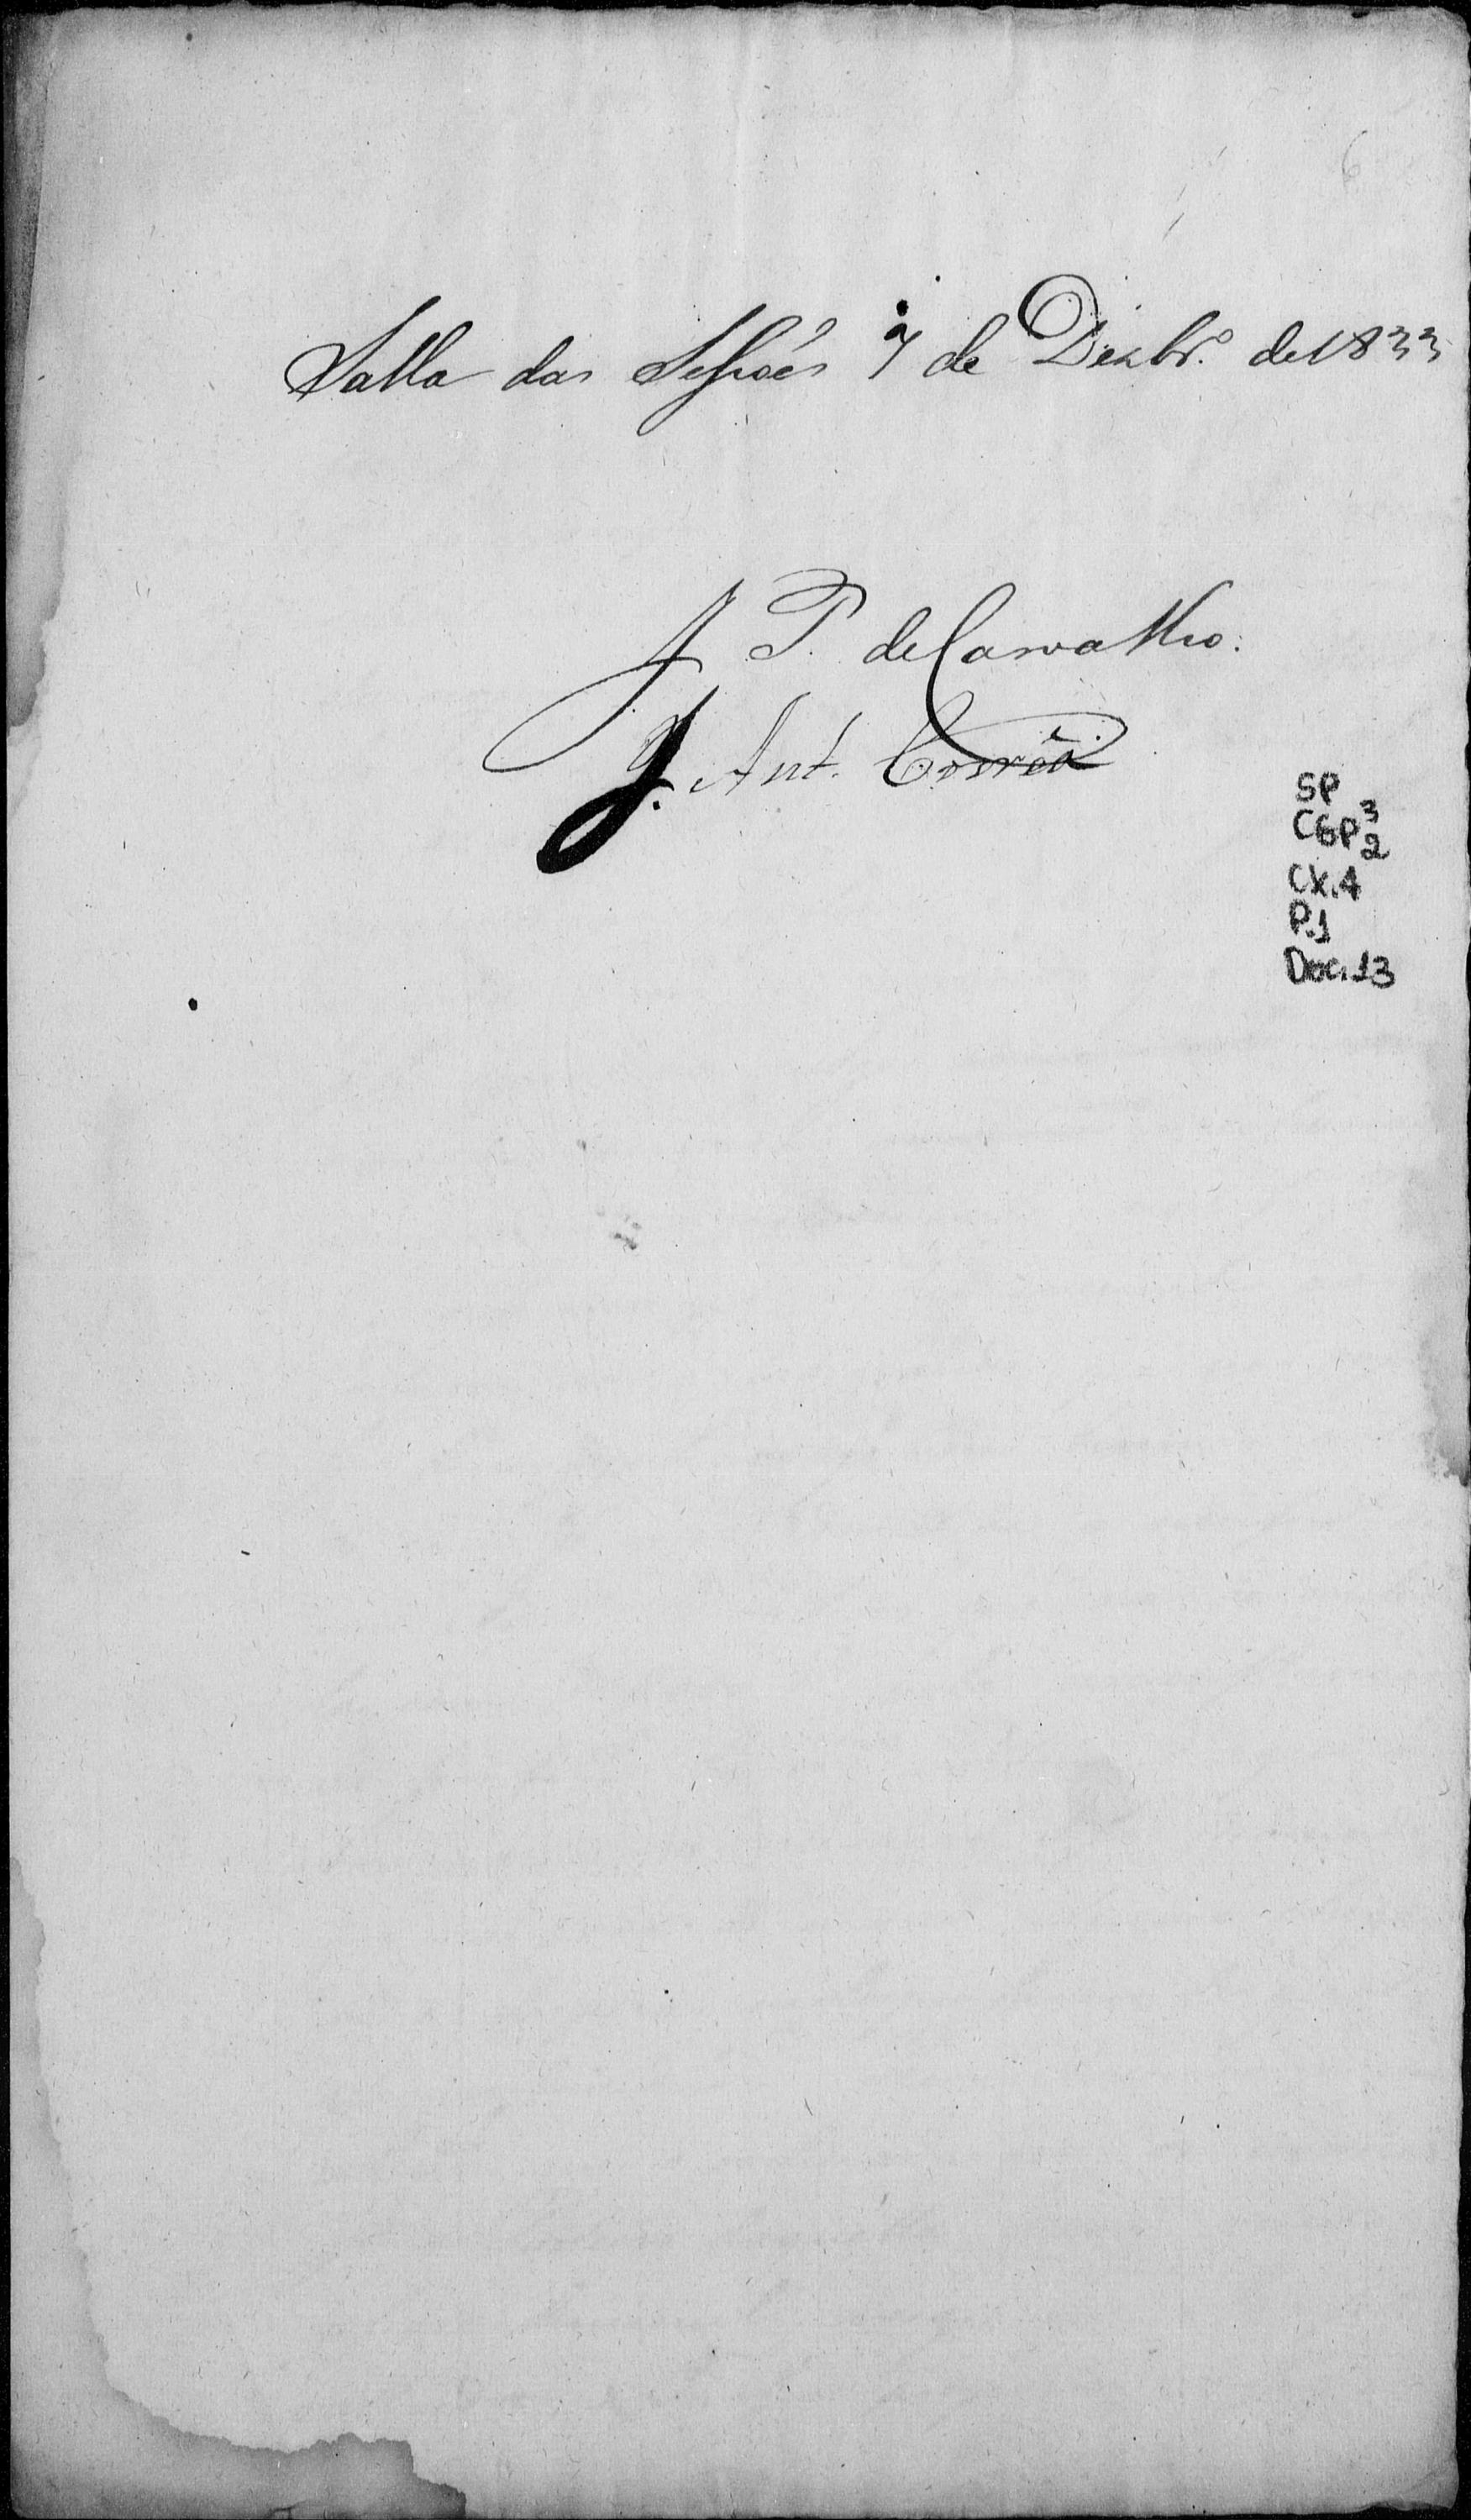 6
Salla das Sessoẽs 7 de Dezbr.º de 1833
J P. de Carvalho.
J. Ant. Corrêa
SP
CGP 3
2
CX.4
P.1
Doc.13